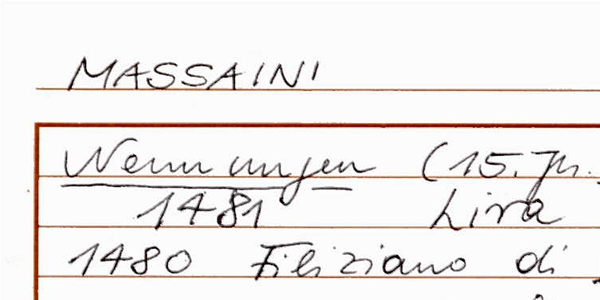 MASSAINI
Nennungen (15. Jh.
1481 Lira
1480 Filiziano di